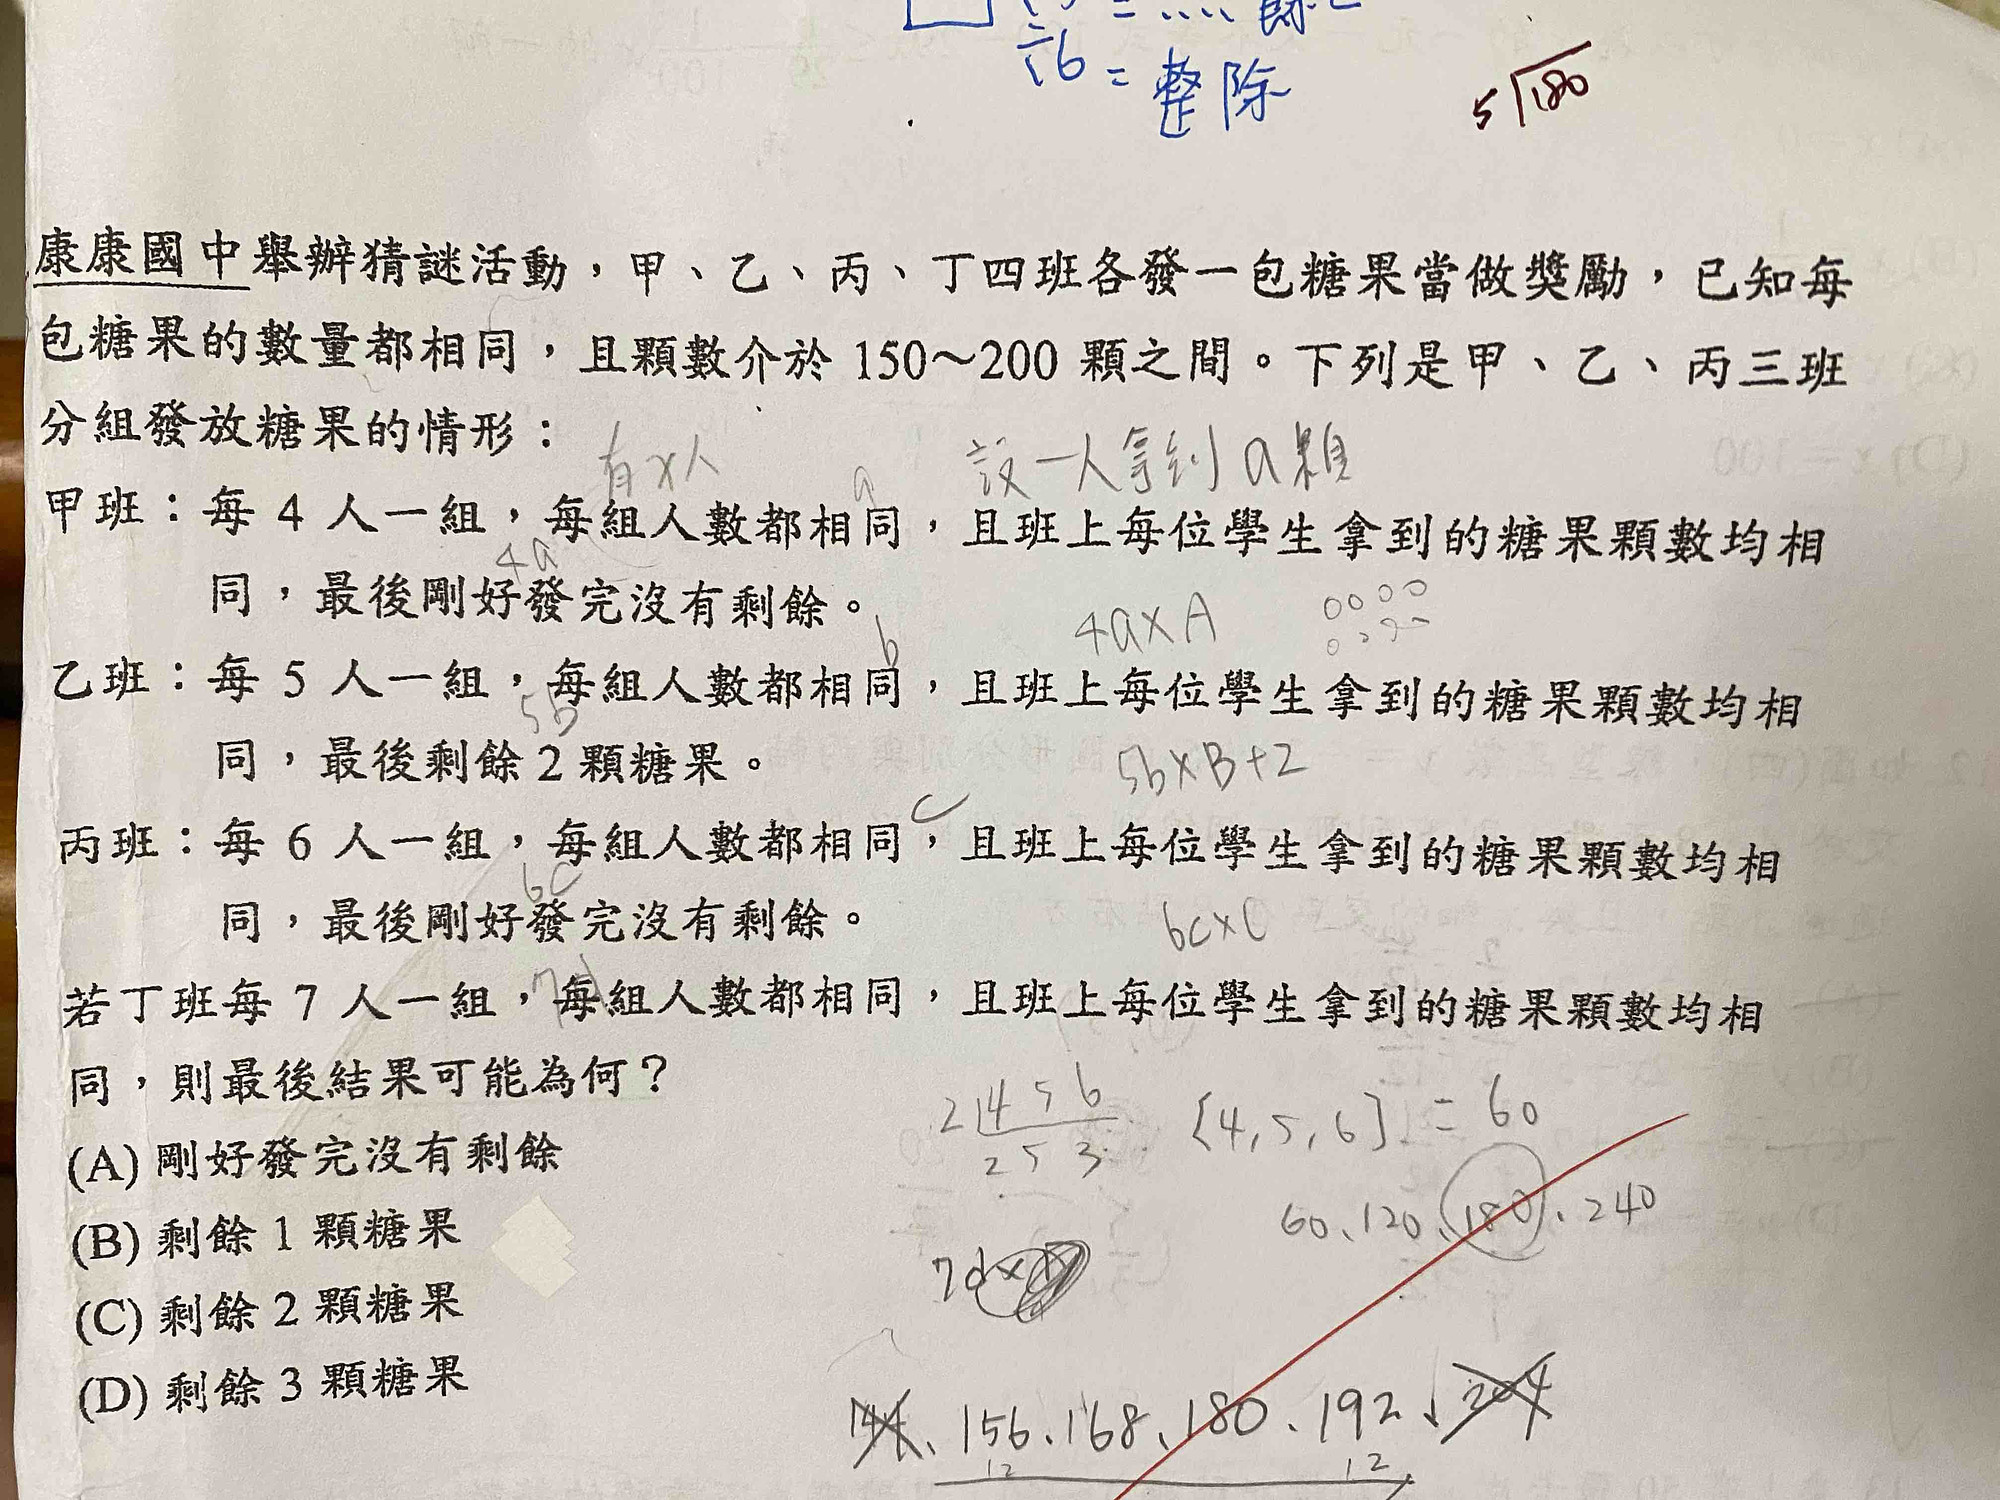 ÷6 = 整除
5 180
康康國中舉辦猜謎活動，甲、乙、丙、丁四班各發一包糖果當做獎勵，已知每
包糖果的數量都相同，且顆數介於 150～200 顆之間。下列是甲、乙、丙三班
分組發放糖果的情形：
有x人 設一人拿到 a 顆
a
甲班：每 4 人一組，每組人數都相同，且班上每位學生拿到的糖果顆數均相
4a
同，最後剛好發完沒有剩餘。
4a×A
b
乙班：每 5 人一組，每組人數都相同，且班上每位學生拿到的糖果顆數均相
5b
同，最後剩餘 2 顆糖果。
5b×B+2
c
丙班：每 6 人一組，每組人數都相同，且班上每位學生拿到的糖果顆數均相
6c
同，最後剛好發完沒有剩餘。
6c×C
7d
若丁班每 7 人一組，每組人數都相同，且班上每位學生拿到的糖果顆數均相
同，則最後結果可能為何？
2 4 5 6 [4,5,6] = 60
2 5 3
(A) 剛好發完沒有剩餘
60、120、180、240
(B) 剩餘 1 顆糖果
7d×
(C) 剩餘 2 顆糖果
(D) 剩餘 3 顆糖果
144、156、168、180、192、204
12 12